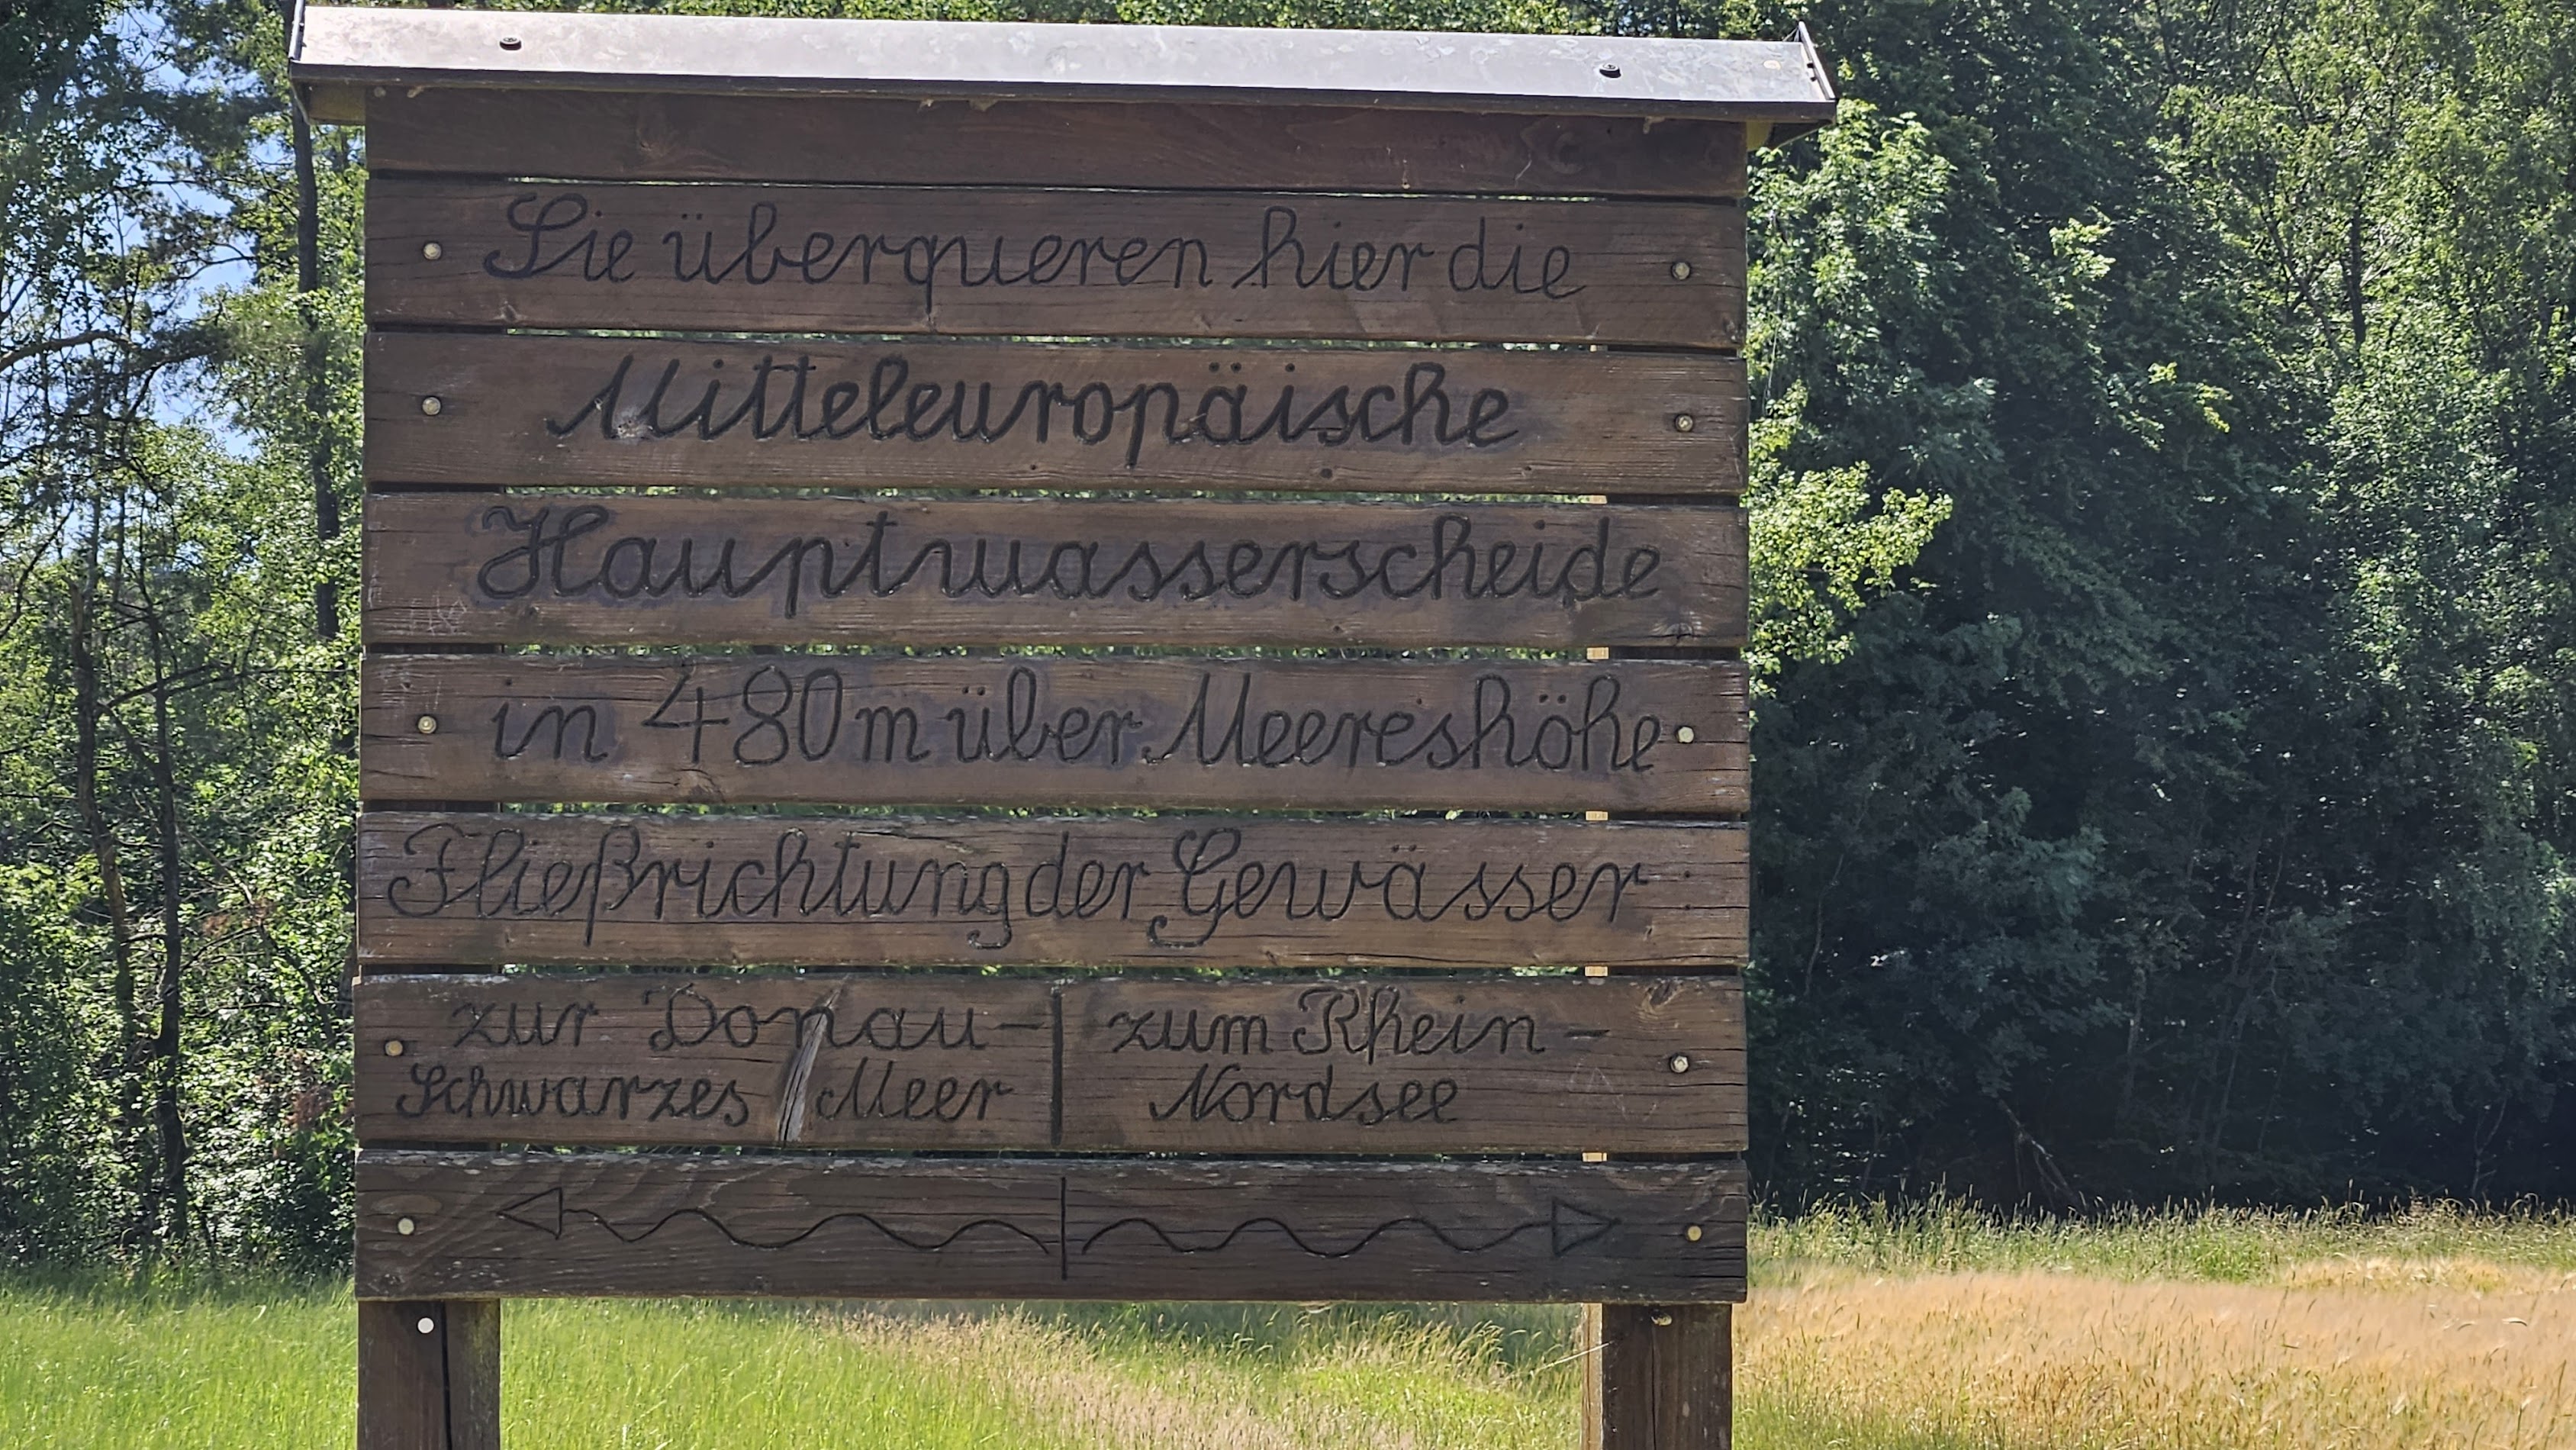 Sie überqueren hier die
Mitteleuropäische
Hauptwasserscheide
in 480 m über Meereshöhe
Fließrichtung der Gewässer :
zur Donau - zum Rhein -
Schwarzes Meer Nordsee